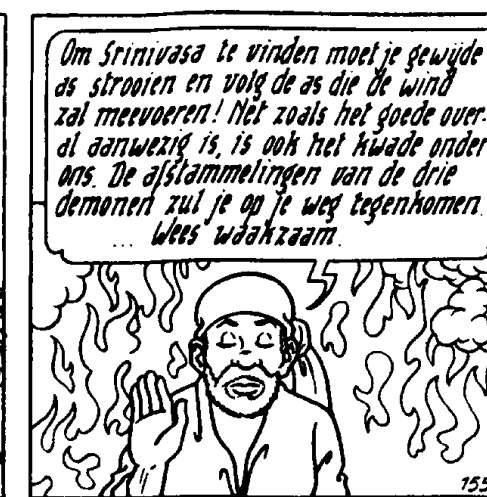 Om Srinivasa te vinden moet je gewijde
as strooien en volg de as die de wind
zal meevoeren! Net zoals het goede over-
al aanwezig is, is ook het kwade onder
ons. De afstammelingen van de drie
demonen zul je op je weg tegenkomen.
... Wees waakzaam.
155